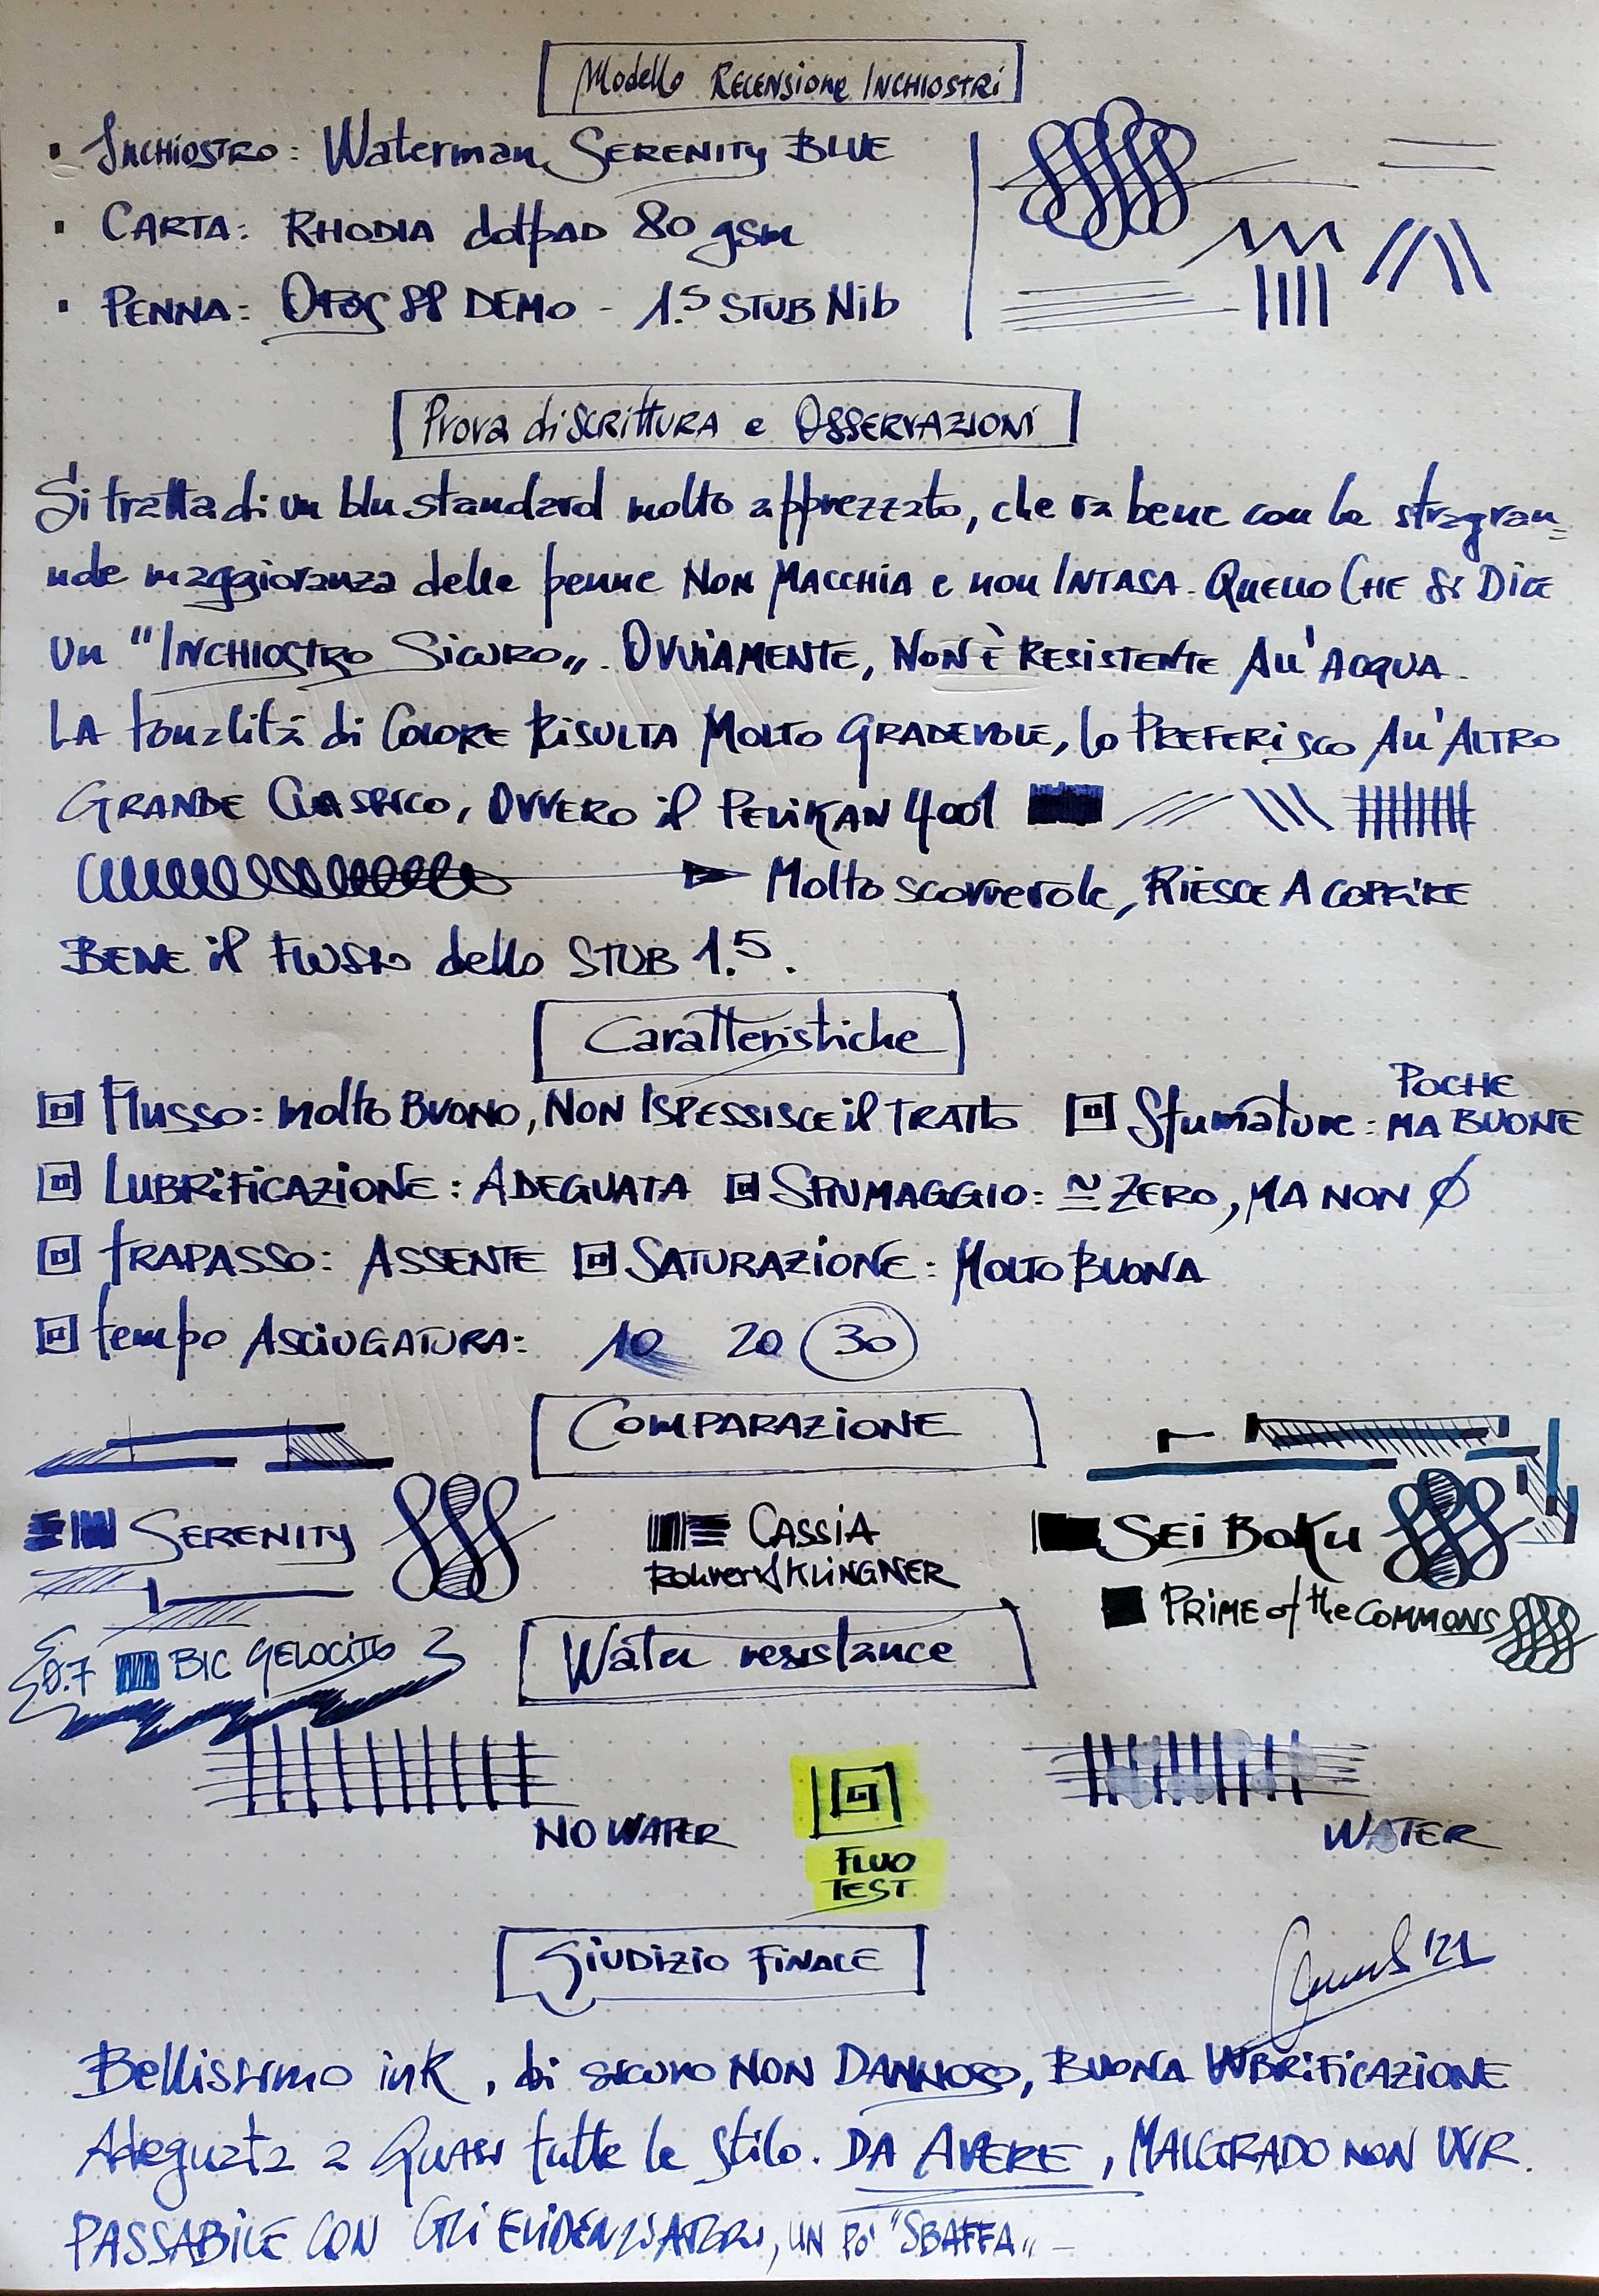 Modello RECENSIONE INCHIOSTRI
INCHIOSTRO: Waterman SERENITY BLUE
CARTA: RHODIA dotpAD 80 gsm
PENNA: 88 DEMO - 1.5 STUB Nib
Prova di SCRITTURA e OSSERVAZIONI
Si tratta di un blu standard molto apprezzato, che va bene con la stragran=
nde maggioranza delle penne NON MACCHIA e non INTASA. QUELLO CHE Si DICE
Un "INCHIOSTRO SICURO". OVVIAMENTE, NON È RESISTENTE All'ACQUA.
LA tonalità di COLORE RISULTA MOLTO GRADEVOLE, lo PREFERISCO All'ALTRO
GRANDE CLASSICO, OVVERO il PELIKAN 4001
Molto scorrevole, RIESCE A COPRIRE
BENE il FLUSSO dello STUB 1.5.
Caratteristiche
Flusso: molto BUONO, NON ISPESSISCE il TRATTO
Sfumature: POCHE
MA BUONE
LUBRIFICAZIONE: ADEGUATA SPIUMAGGIO: ≅ ZERO, MA NON Ø
TRAPASSO: ASSENTE SATURAZIONE: MOLTO BUONA
tempo ASCIUGATURA: 10 20 30
COMPARAZIONE
SERENITY
CASSIA
Rohrer & KLINGNER
SEi BOKU
PRIME of the COMMONS
0.7 BIC GELOCITO
Water resistance
NO WATER
WATER
FLUO
TEST
GIUDIZIO FINALE
'21
Bellissimo ink, di sicuro NON DANNOSO, BUONA LUBRIFICAZIONE
Adeguata a QUASI tutte le stilo. DA AVERE, MALGRADO NON WR.
PASSABILE CON GLI EVIDENZIATORI, UN PO' "SBAFFA" -